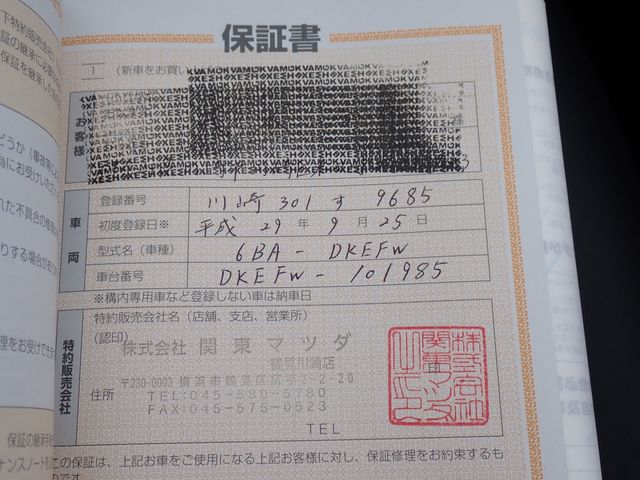 保証書
1
(新車をお買い
お客様
車両
登録番号 川崎 301 す 9685
初度登録日※ 平成 29 年 9 月 25 日
型式名(車種) 6BA - DKEFW
車台番号 DKEFW - 101985
※構内専用車など登録しない車は納車日
特約販売会社
特約販売会社名(店舗、支店、営業所)
(認印)
株式会社 関東マツダ
鶴見川崎店
住所
〒230-0003 横浜市鶴見区尻手2-2-20
TEL:045-580-5780
FAX:045-575-0523
TEL
この保証は、上記お車をご使用になる上記お客様に対し、保証修理をお約束するも
のです。
下特約販売会
証の継承に必
保証を継承した
どうか(事故等に
為にお受けいただ
れた不具合の修
りする場合があ
理をお受けでき
保証の継承
ナンスノート